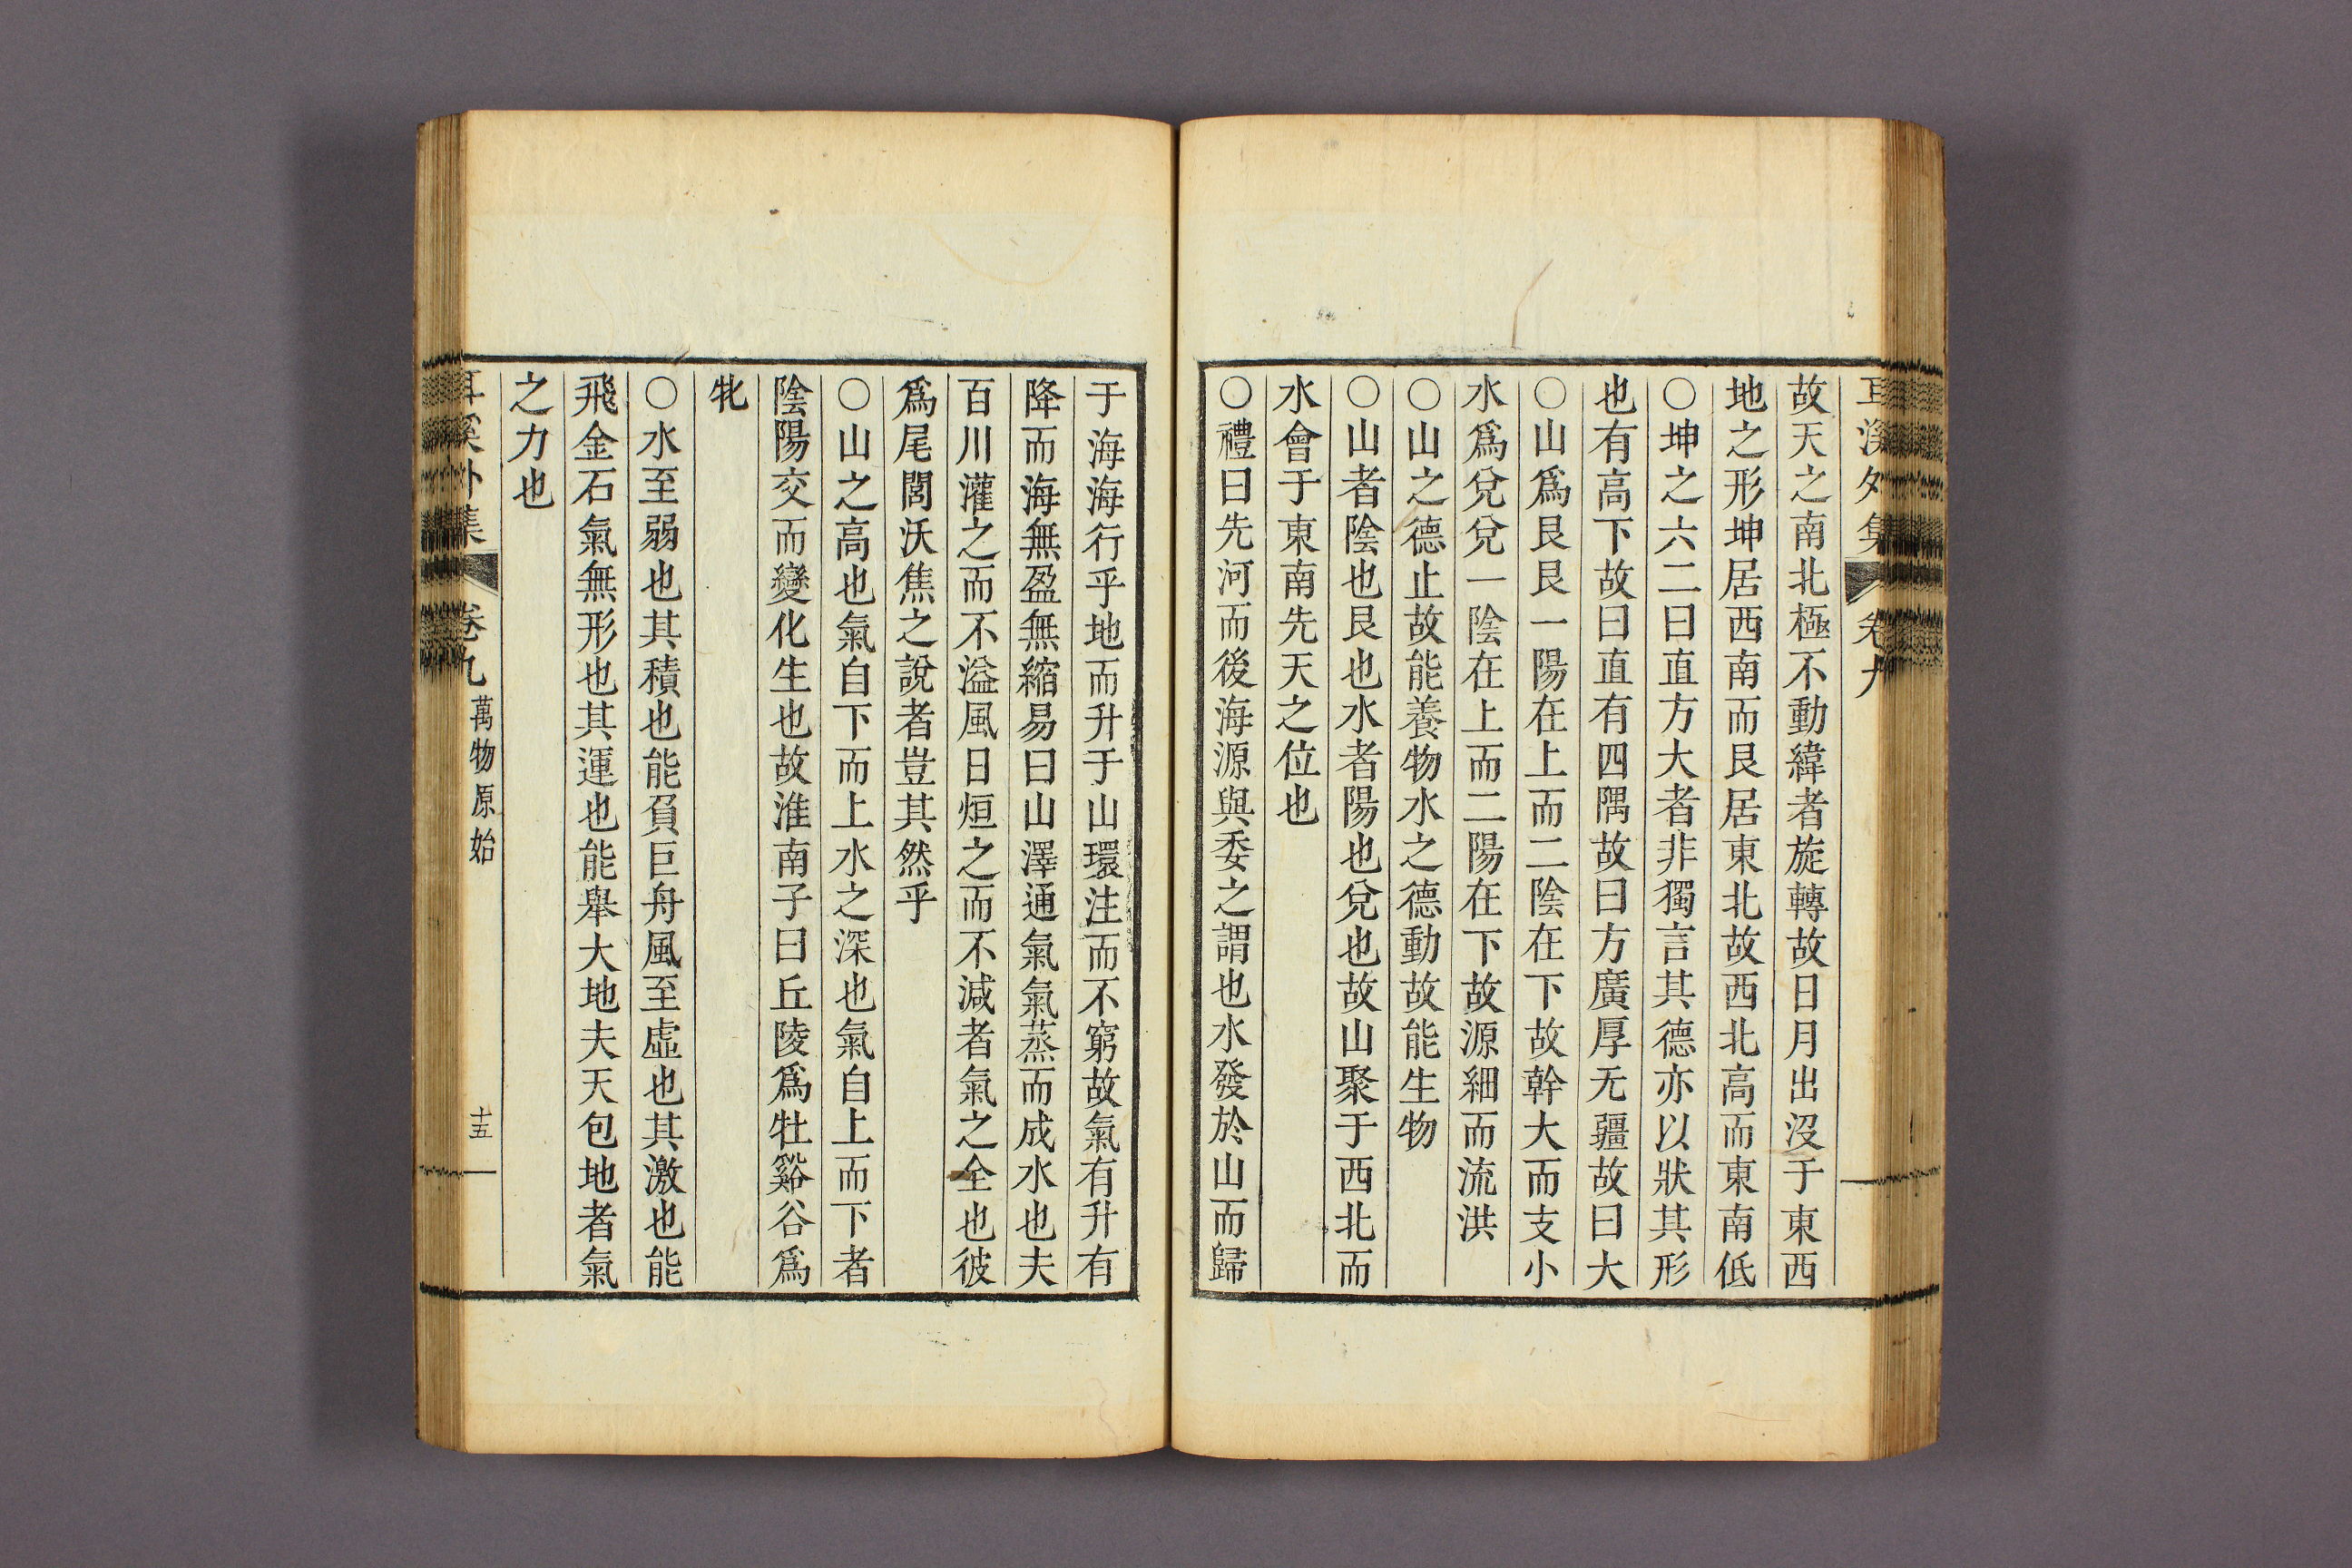 耳溪外集 卷九
故天之南北極不動緯者旋轉故日月出沒于東西
地之形坤居西南而艮居東北故西北高而東南低
○坤之六二曰直方大者非獨言其德亦以狀其形
也有高下故曰直有四隅故曰方廣厚无疆故曰大
○山爲艮艮一陽在上而二陰在下故幹大而支小
水爲兌兌一陰在上而二陽在下故源細而流洪
○山之德止故能養物水之德動故能生物
○山者陰也艮也水者陽也兌也故山聚于西北而
水會于東南先天之位也
○禮曰先河而後海源與委之謂也水發於山而歸
于海海行乎地而升于山環注而不窮故氣有升有
降而海無盈無縮易曰山澤通氣氣蒸而成水也夫
百川灌之而不溢風日烜之而不減者氣之全也彼
爲尾閭沃焦之說者豈其然乎
○山之高也氣自下而上水之深也氣自上而下者
陰陽交而變化生也故淮南子曰丘陵爲牡谿谷爲
牝
○水至弱也其積也能負巨舟風至虛也其激也能
飛金石氣無形也其運也能舉大地夫天包地者氣
之力也
耳溪外集 卷九 萬物原始 十五